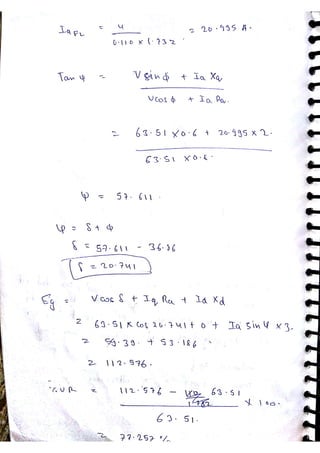 Ia FL = 4 / 0.110 x 1.732 = 20.995 A.
Tan ψ = V sinϕ + Ia Xq / V cos ϕ + Ia Ra.
= 63.51 x 0.6 + 20.995 x 2. / 63.51 x 0.6.
ψ = 57.611
ψ = δ + ϕ
δ = 57.611 - 36.86
δ = 20.741
Eg = V cos δ + Iq Ra + Id Xd
= 63.51 x cos 20.741 + 0 + Ia sin ψ x 3.
= 59.39. + 53.186
= 112.576.
% VR = 112.576 - 63.51 / 63.51. x 100.
= 77.257 %